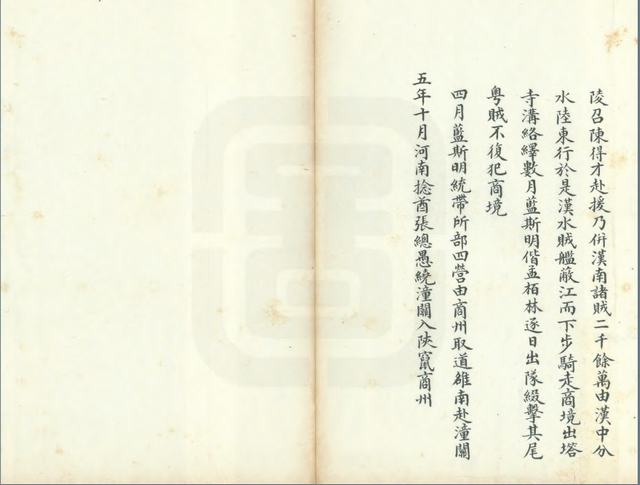 陵召陳得才赴援乃併漢南諸賊二千餘萬由漢中分
水陸東行於是漢水賊艦蔽江而下步騎走商境出塔
寺溝絡繹數月藍斯明偕孟栢林逐日出隊綴擊其尾
粤賊不復犯商境
四月藍斯明統帶所部四營由商州取道雒南赴潼關
五年十月河南捻酋張總愚繞潼關入陝竄商州